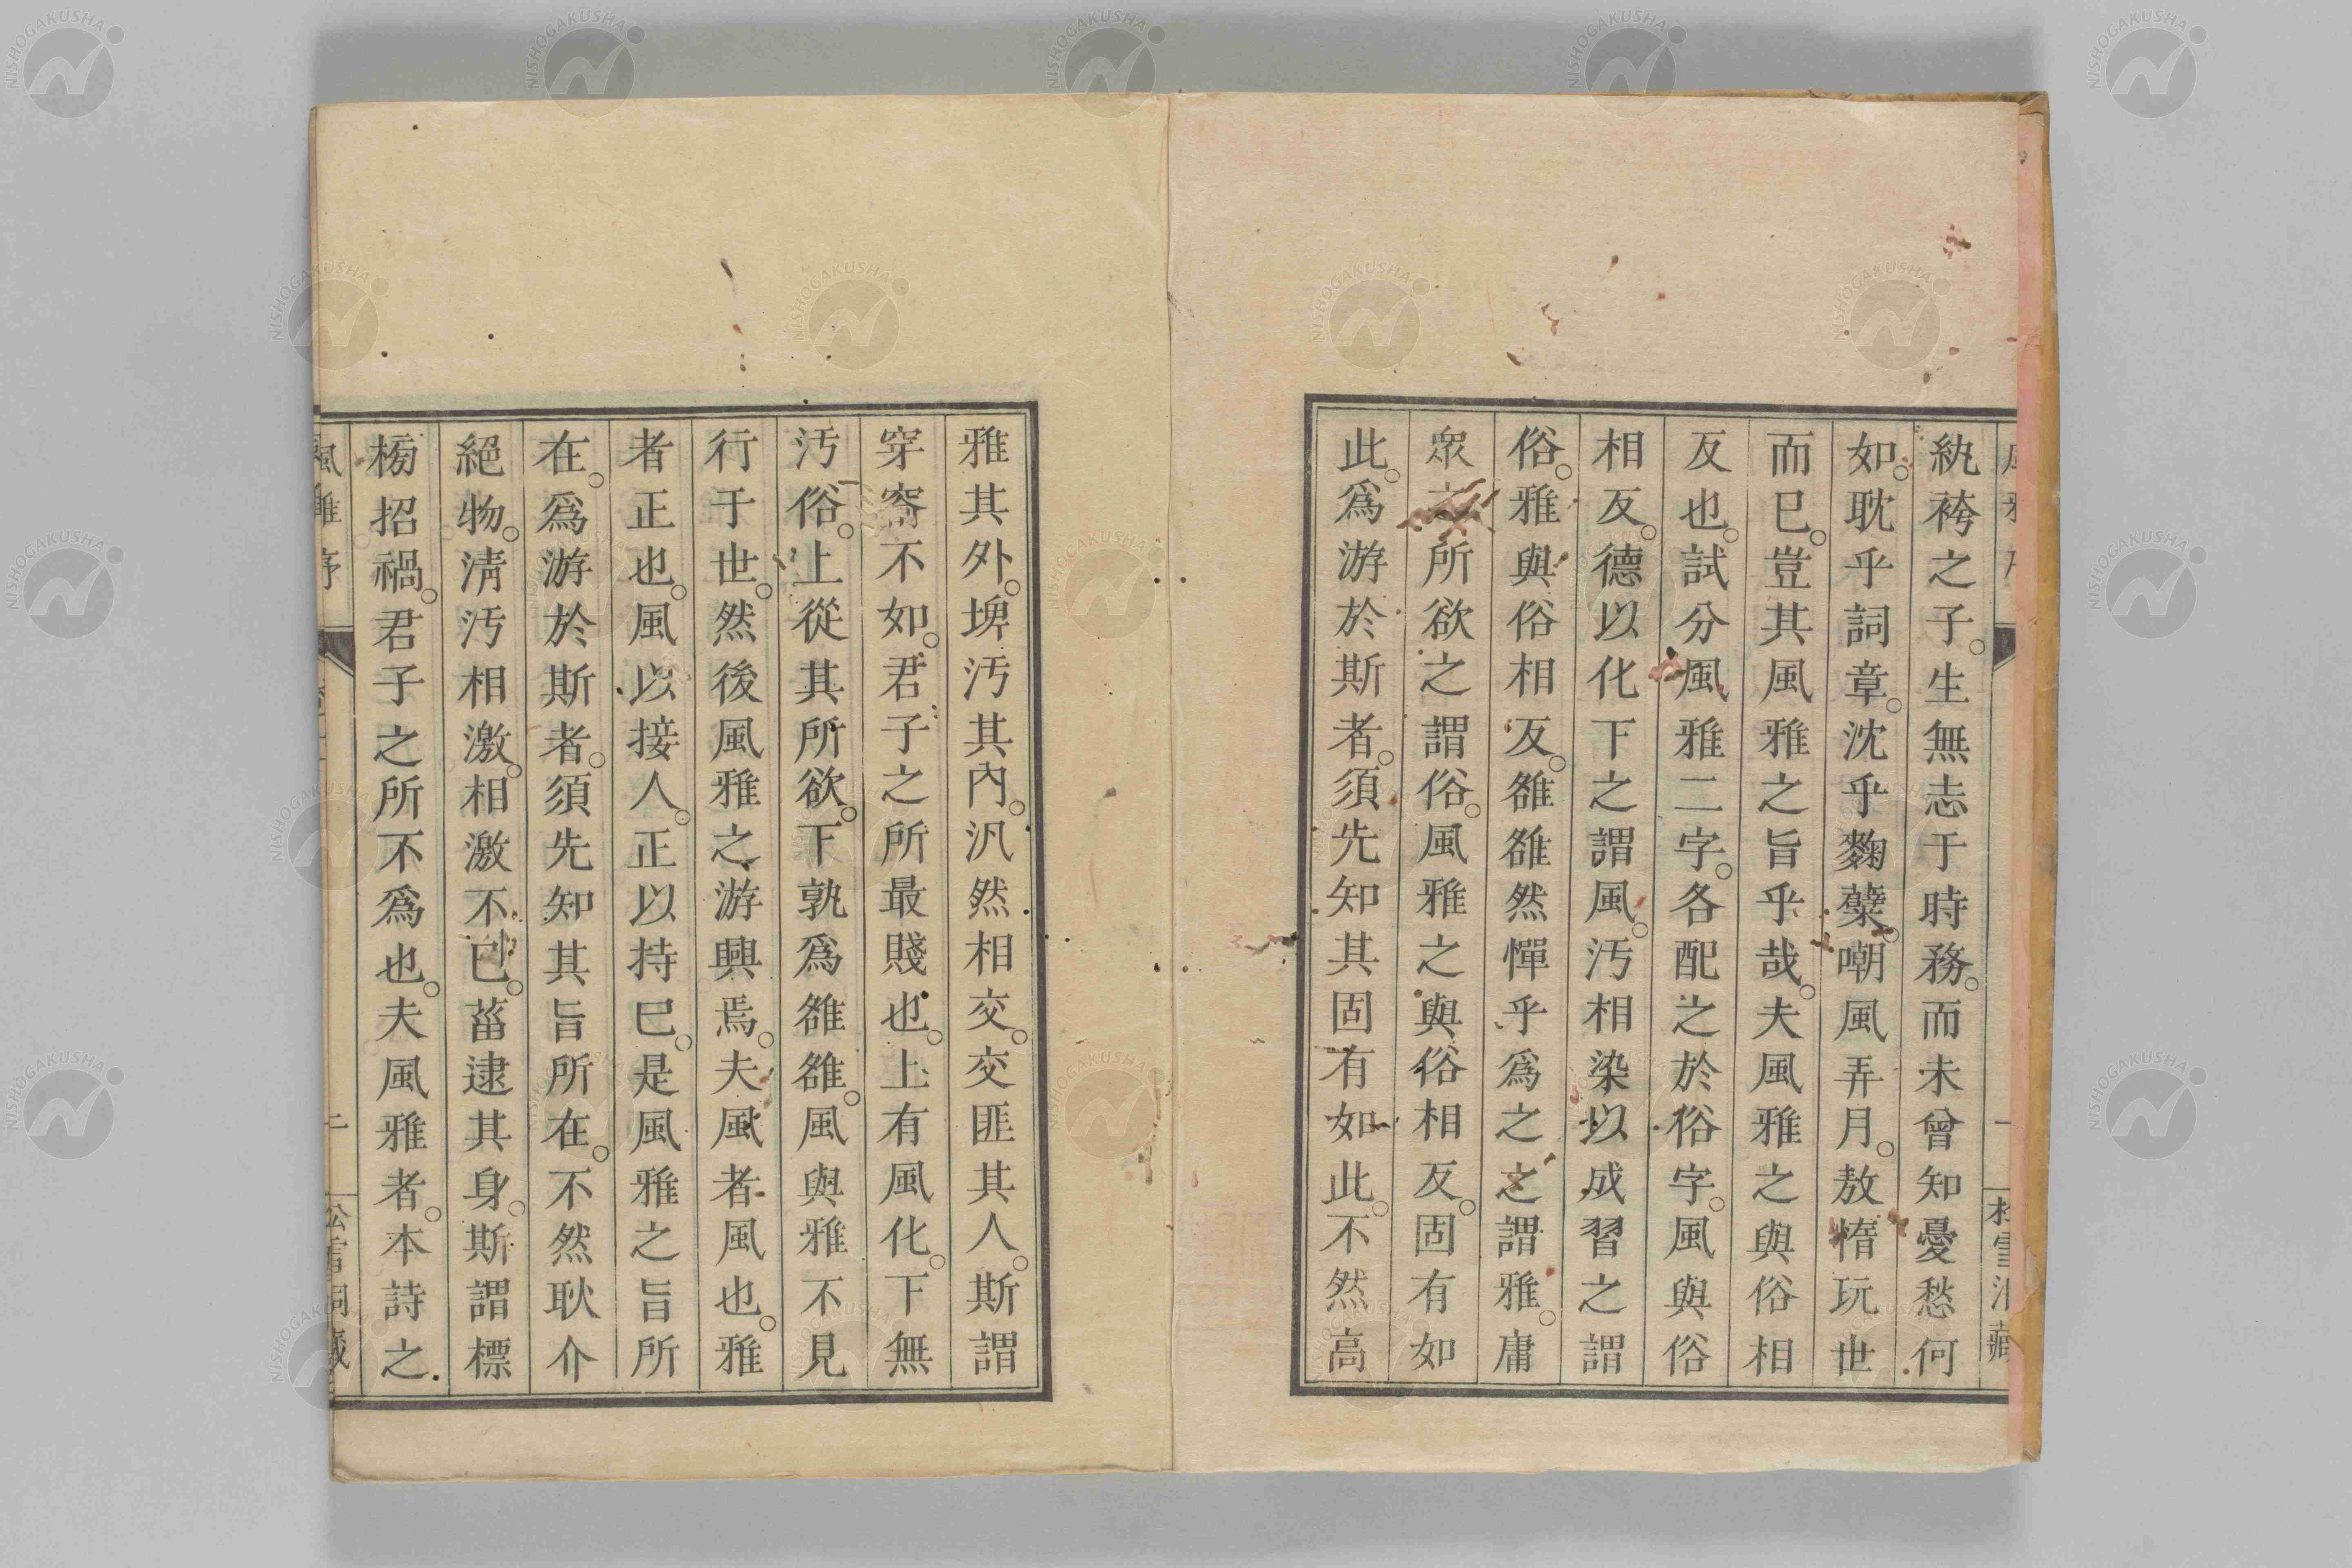 紈袴之子。生無志于時務。而未曾知憂愁何
如。耽乎詞章。沈乎麴糵。嘲風弄月。敖惰玩世
而已。豈其風雅之旨乎哉。夫風雅之與俗相
反也。試分風雅二字。各配之於俗字。風與俗
相反。德以化下之謂風。汚相染以成習之謂
俗。雅與俗相反。雒雒然憚乎爲之之謂雅。庸
衆之所欲之謂俗。風雅之與俗相反。固有如
此。爲游於斯者。須先知其固有如此。不然高
雅其外。埤汚其內。汎然相交。交匪其人。斯謂
穿窬不如。君子之所最賤也。上有風化。下無
汚俗。上從其所欲。下孰爲雒雒。風與雅不見
行于世。然後風雅之游興焉。夫風者風也。雅
者正也。風以接人。正以持已。是風雅之旨所
在。爲游於斯者。須先知其旨所在。不然耿介
絕物。淸汚相激。相激不已。菑逮其身。斯謂標
榜招禍。君子之所不爲也。夫風雅者。本詩之
風雅序
二
松雪洞藏